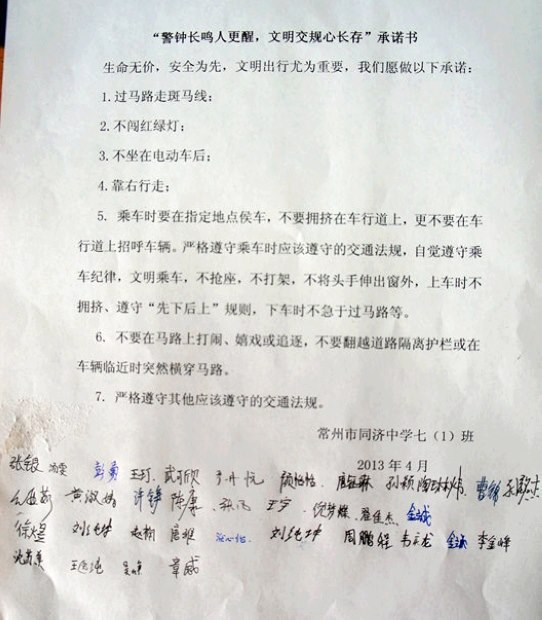 “警钟长鸣人更醒，文明交规心长存”承诺书
生命无价，安全为先，文明出行尤为重要，我们愿做以下承诺：
1.过马路走斑马线；
2.不闯红绿灯；
3.不坐在电动车后；
4.靠右行走；
5. 乘车时要在指定地点侯车，不要拥挤在车行道上，更不要在车
行道上招呼车辆。严格遵守乘车时应该遵守的交通法规，自觉遵守乘
车纪律，文明乘车，不抢座，不打架，不将头手伸出窗外，上车时不
拥挤、遵守“先下后上”规则，下车时不急于过马路等。
6. 不要在马路上打闹、嬉戏或追逐，不要翻越道路隔离护栏或在
车辆临近时突然横穿马路。
7. 严格遵守其他应该遵守的交通法规。
常州市同济中学七（1）班
2013年4月
张银 彭勇 王玎 武可欣 顾怡怡 孙颖
黄淑娟 许铮 陈康 王宇 金诚
徐煜 赵翰 周鹏程 韦云龙 李金峰
章威